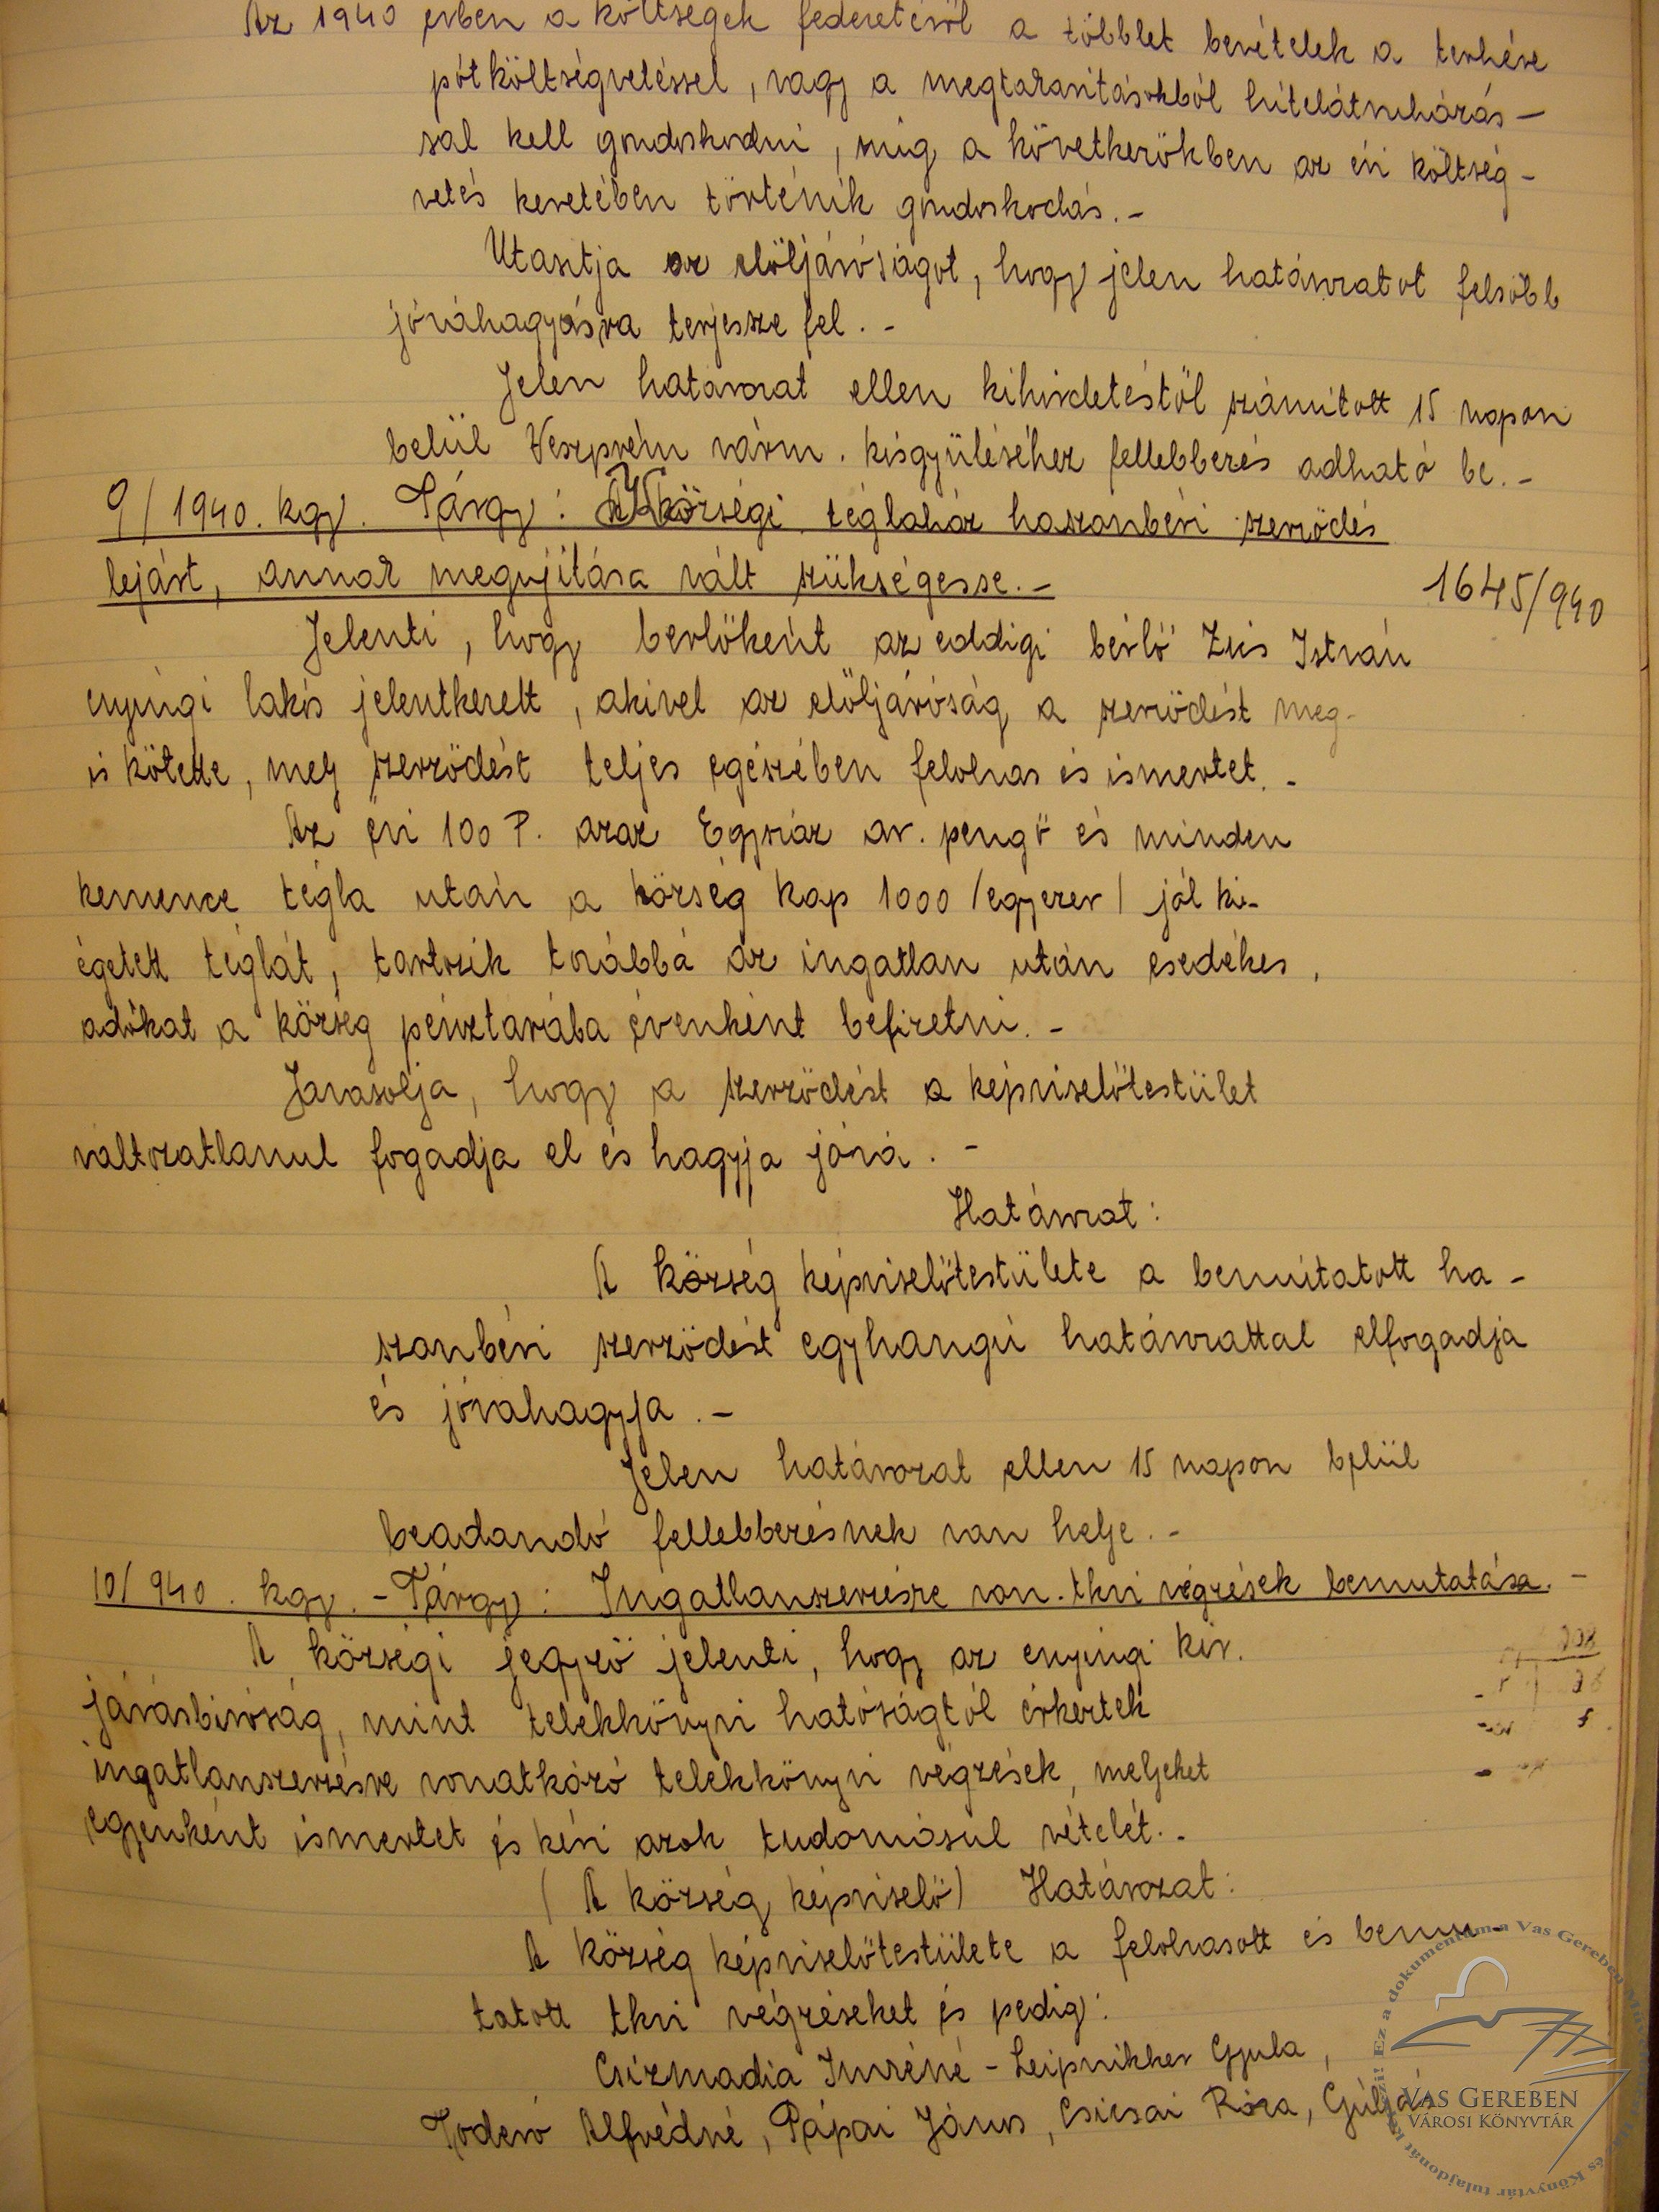 Az 1940 évben a költségek fedezetéről a többlet bevételek a terhére
pótköltségvetéssel, vagy a megtakaritásokból hitelátruházás-
sal kell gondoskodni, mig a következőkben az évi költség-
vetés keretében történik gondoskodás.-
Utasitja az elöljáróságot, hogy jelen határozatot felsőbb
jóváhagyásra terjessze fel.-
Jelen határozat ellen kihirdetéstől számitott 15 napon
belül Veszprém várm. kisgyüléséhez fellebbezés adható be.-
9/1940. kgy. Tárgy: községi téglaház haszonbéri szerződés
lejárt, annak megujitása vált szükségesse.-
1645/940
Jelenti, hogy bérlőként az eddigi bérlő István
enyingi lakós jelentkezett, akivel az elöljáróság a szerződést meg-
is kötötte, mely szerződést teljes egészében felolvas és ismertet.-
Az évi 100 P. azaz Egyszáz ar. pengő és minden
kemence tégla után a község kap 1000 /egyezer/ jól ki-
égetett téglát, tartozik továbbá az ingatlan után esedékes,
adókat a község pénztarába évenként befizetni.-
Javasolja, hogy a szerződést a képviselőtestület
változatlanul fogadja el és hagyja jóvá.-
Határozat:
A község képviselőtestülete a bemutatott ha-
szonbéri szerződést egyhangú határozattal elfogadja
és jóvahagyja.-
Jelen határozat ellen 15 napon belül
beadandó fellebbezésnek van helye.-
10/940. kgy.- Tárgy: Ingatlanszerzésre von. tkvi végzések bemutatása.-
A községi jegyző jelenti, hogy az enyingi kir.
járásbiróság, mint telekkönyvi hatóságtól érkeztek
ingatlanszerzésre vonatkózó telekkönyvi végzések, melyeket
egyenként ismertet és kéri azok tudomásul vételét.-
(A község képviselő) Határozat:
A község képviselőtestülete a felolvasott és bemu-
tatott tkvi végzéseket és pedig:
Csizmadia Imréné - Leipnikker Gyula,
Todero Alfrédné, Pápai János, Csicsai Róza, Gúlyás
VAS GEREBEN
VÁROSI KÖNYVTÁR